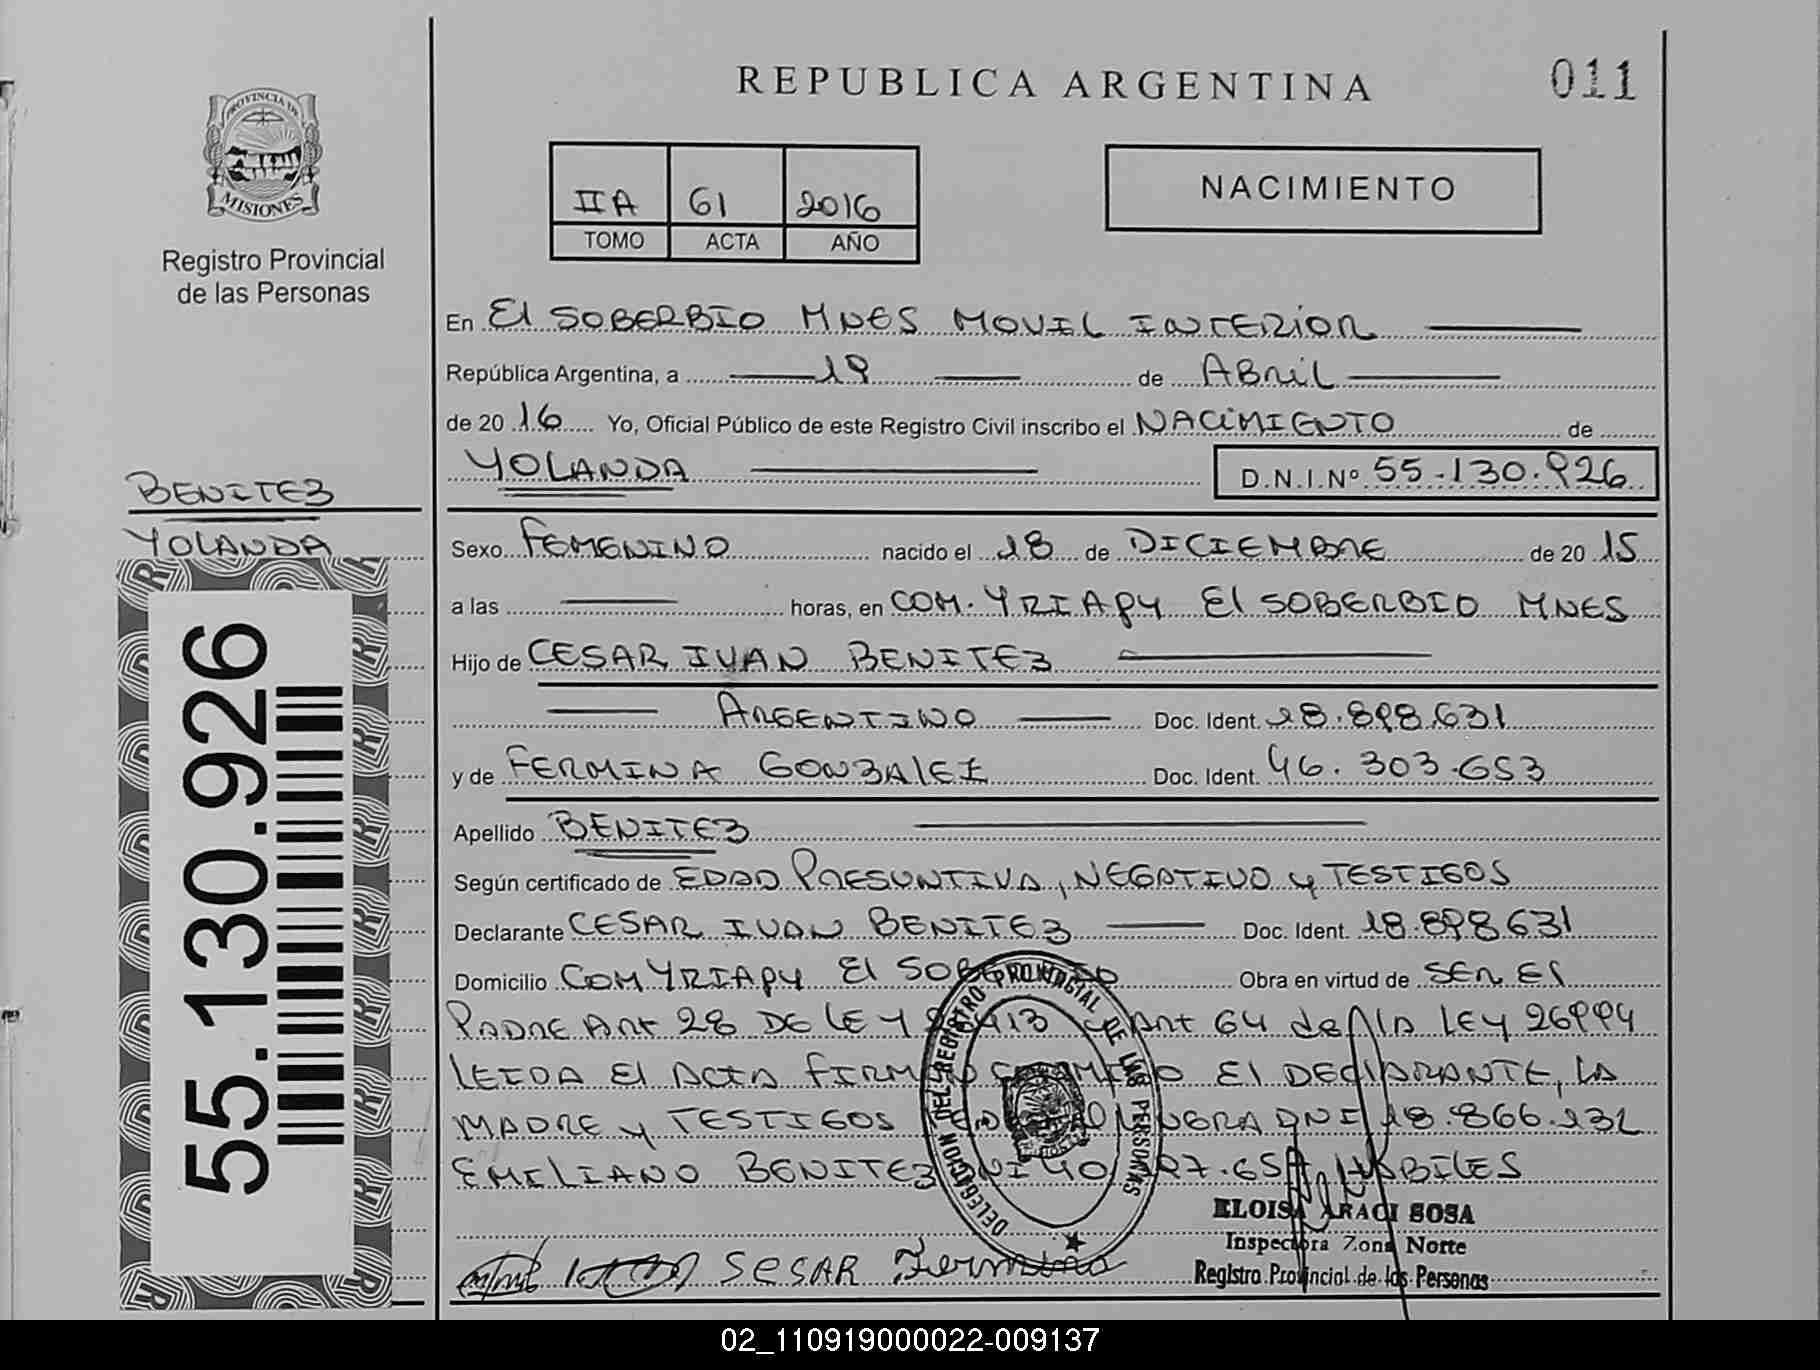 REPUBLICA ARGENTINA
011
PROVINCIA DE
MISIONES
Registro Provincial
de las Personas
IIA 61 2016
TOMO ACTA AÑO
NACIMIENTO
En El SOBERBIO MNES MOVIL INTERIOR
República Argentina, a 19 de ABRIL
de 20 16 Yo, Oficial Público de este Registro Civil inscribo el NACIMIENTO de
YOLANDA D.N.I.Nº 55.130.926
BENITEZ
YOLANDA
55.130.926
Sexo FEMENINO nacido el 18 de DICIEMBRE de 20 15
a las horas, en COM. YRIAPY El SOBERBIO MNES
Hijo de CESAR IVAN BENITEZ
ARGENTINO Doc. Ident. 18.898.631
y de FERMINA GONZALEZ Doc. Ident. 46.303.653
Apellido BENITEZ
Según certificado de EDAD PRESUNTIVA, NEGATIVO y TESTIGOS
Declarante CESAR IVAN BENITEZ Doc. Ident. 18.898.631
Domicilio COM YRIAPY El SOBERBIO Obra en virtud de SER El
PADRE Art 28 DE LEY 26413 y Art 64 de la LEY 26994
LEIDA El ACTA FIRMAN El DECLARANTE, LA
MADRE y TESTIGOS DNI 18.866.131
EMILIANO BENITEZ HABILES
DELEGACION DEL REGISTRO PROVINCIAL DE LAS PERSONAS
ELOISA ARACI SOSA
Inspectora Zona Norte
Registro Provincial de las Personas
SESAR Fermina
02_110919000022-009137